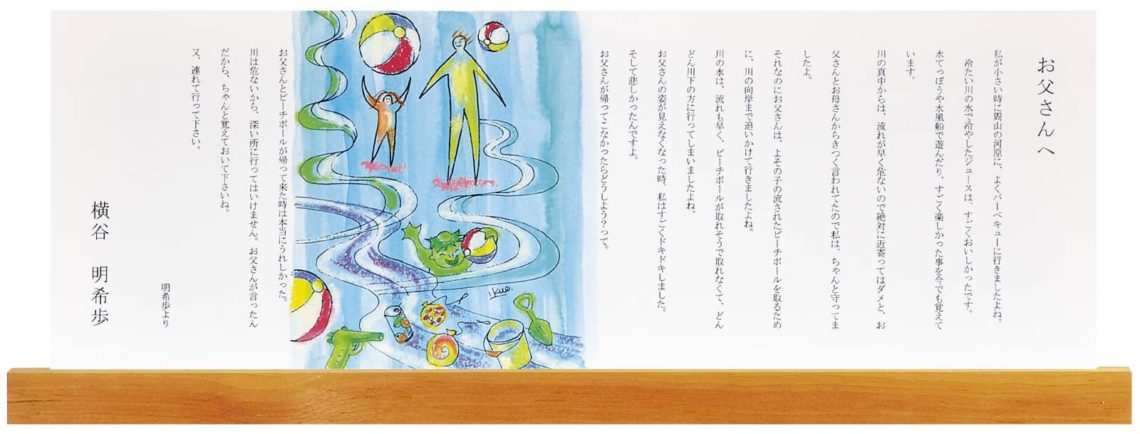 お父さんへ
私が小さい時に周山の河原に、よくバーベキューに行きましたよね。
冷たい川の水で冷やしたジュースは、すごくおいしかったです。
水てっぽうや水風船で遊んだり、すごく楽しかった事を今でも覚えて
います。
川の真中からは、流れが早く危ないので絶対に近寄ってはダメと、お
父さんとお母さんからきつく言われてたので私は、ちゃんと守ってま
したよ。
それなのにお父さんは、よその子の流されたビーチボールを取るため
に、川の向岸まで追いかけて行きましたよね。
川の水は、流れも早く、ビーチボールが取れそうで取れなくて、どん
どん川下の方に行ってしまいましたよね。
お父さんの姿が見えなくなった時、私はすごくドキドキしました。
そして悲しかったんですよ。
お父さんが帰ってこなかったらどうしよう?って。
お父さんとビーチボールが帰って来た時は本当にうれしかった。
川は危ないから、深い所に行ってはいけません。お父さんが言ったん
だから、ちゃんと覚えておいて下さいね。
又、連れて行って下さい。
明希歩より
横谷 明希歩